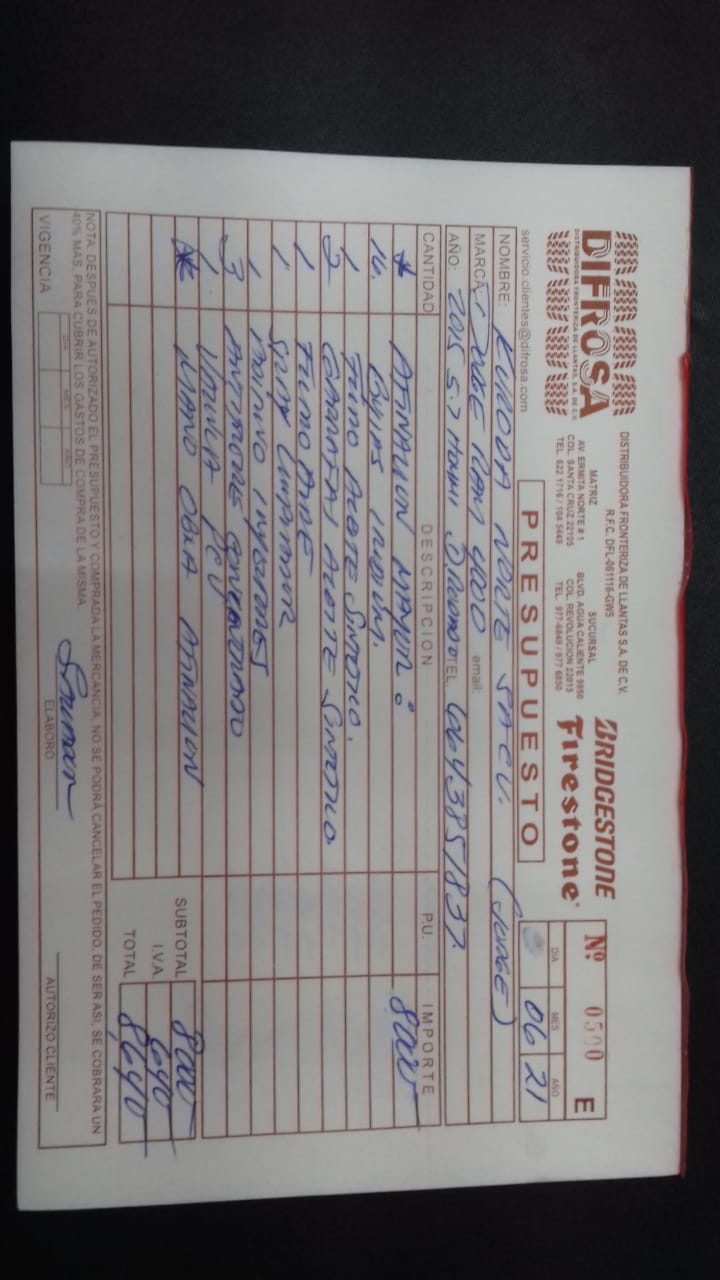 DIFROSA
DISTRIBUIDORA FRONTERIZA DE LLANTAS, S.A. DE C.V.
DISTRIBUIDORA FRONTERIZA DE LLANTAS S.A. DE C.V.
R.F.C. DFL-061116-GW5
MATRIZ
AV. ERMITA NORTE # 1
COL. SANTA CRUZ 22105
TEL. 622 1716 / 104 5449
SUCURSAL
BLVD. AGUA CALIENTE 9950
COL. REVOLUCION 22015
TEL. 977-6849 / 977 6850
BRIDGESTONE
Firestone
Nº 0500 E
servicio.clientes@difrosa.com
PRESUPUESTO
DIA MES AÑO
06 21
NOMBRE: KURODA NORTE SACV. (JORGE)
MARCA: DODGE RAM 400 email:
AÑO: 2015 5.7 HEMI TEL. 6643851837
CANTIDAD DESCRIPCION P.U. IMPORTE
* AFINACION MAYOR: 8000
16 BUJIAS IRIDIUM.
1 FILTRO ACEITE SINTETICO.
2 GARRAFAS ACEITE SINTETICO.
1 FILTRO AIRE
1 SPRAY LIMPIADOR
1 ADITIVO INYECTORES
3 ANTICONGE CONCENTRADO
1 VALVULA PCV
* MANO OBRA AFINACION
SUBTOTAL 8000
I.V.A. 640
TOTAL 8,640
NOTA: DESPUES DE AUTORIZADO EL PRESUPUESTO Y COMPRADA LA MERCANCIA, NO SE PODRÁ CANCELAR EL PEDIDO, DE SER ASI, SE COBRARA UN
40% MAS, PARA CUBRIR LOS GASTOS DE COMPRA DE LA MISMA.
VIGENCIA
DIA MES AÑO
ELABORO
AUTORIZO CLIENTE